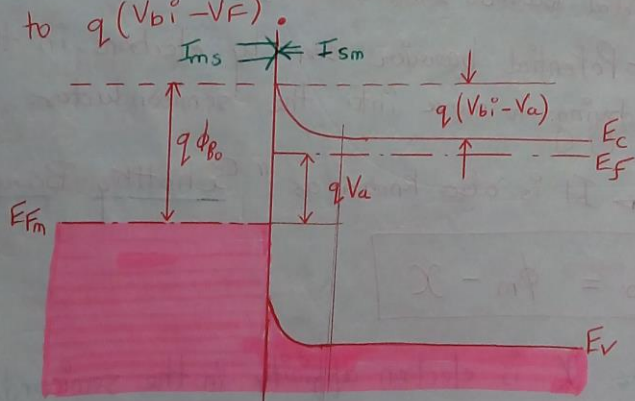 to q(Vbi-VF).
Ims Ism
q(Vbi-Va)
qϕB0
Ec
Ef
qVa
EFm
Ev